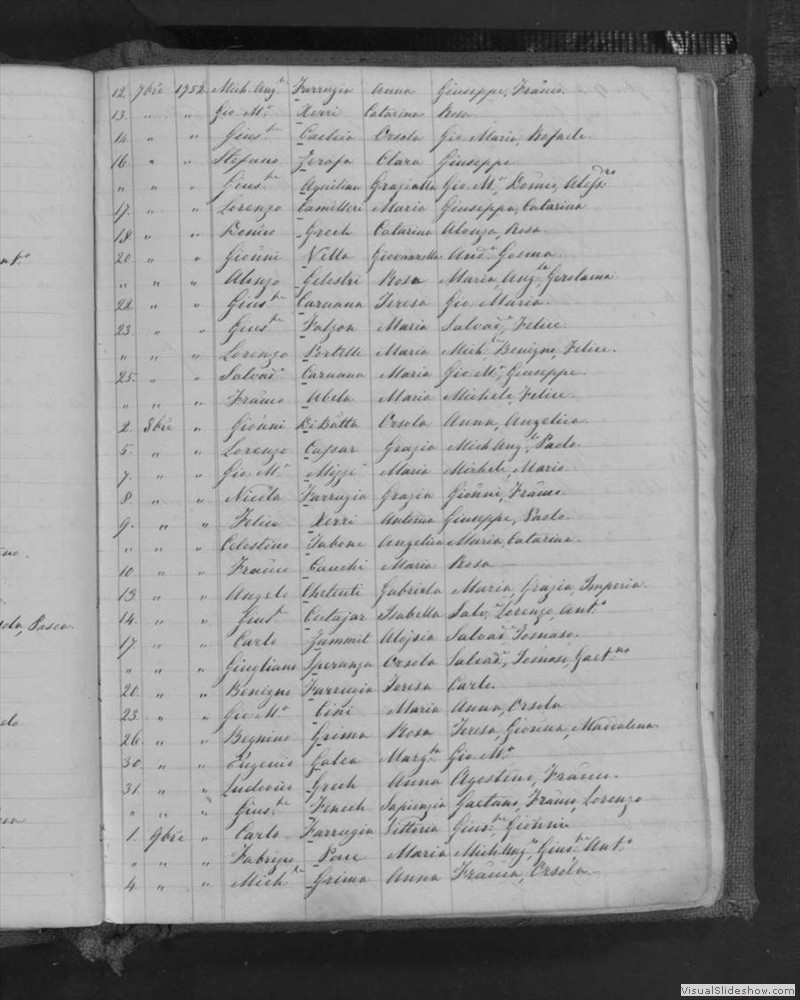 12 7bre 1752 Mich. Ang.lo Farrugia Anna Giuseppe, Franco.
13. " " Gio. Ma. Xerri Catarina Rosa
14. " " Gius.pe Caelia Orsola Gio Maria, Rafaele.
16. " " Stefano Zerafa Clara Giuseppe
" " " Gius.pe Aquilina Graziulla Gio. Ma.
17. " " Lorenzo Camilleri Maria Giuseppa, Catarina
18. " " Grech Catarina Alonza, Rosa
20. " " Gionni Vella Giovannella Cosma
" " " Alonzo Celestri Rosa Maria, Ang.la Gerolama
22. " " Gius.pe Caruana Teresa Gio. Maria.
23. " " Gius.pe Falzon Maria Salvad.e, Felice.
" " " Lorenzo Portelli Maria Mich.e, Benigno, Felice.
25. " " Salvad.e Caruana Maria Gio Ma., Giuseppe.
" " " Franco Abela Maria Michele, Felice.
2. 8bre " Gionni DiBatta Orsola Anna, Angelica.
5. " " Lorenzo Cassar Grazia Mich Ang.lo, Paolo
7. " " Gio. Ma. Mizzi Maria Michele, Mario
8. " " Nicola Farrugia Grazia Gionni, Franco.
9. " " Felice Xerri Antonia Giuseppe, Paolo
" " " Celestino Tabone Angelica Maria, Catarina.
10 " " Franco Cauchi Maria Rosa
13. " " Angelo Gabriela Maria, Grazia, Imperia.
14. " " Gius.e Cutajar Isabella Salv.e, Lorenzo, Ant.o
17. " " Carlo Zammit Alojsia Salvad.e, Tomaso.
" " " Giugliano Speranza Orsola Salvad.e, Tomaso, Gaet.no
20. " " Benigno Farrugia Teresa Carlo.
23. " " Gio. Ma. Cini Maria Anna, Orsola
26. " " Begnino Grima Rosa Teresa, Gionna, Madalena
30. " " Eugenio Galea Marg.ta Gio. Ma.
31. " " Ludovico Grech Anna Agostino, Franco.
" " " Gius.pe Fenech Sapienzia Gaetano, Franco, Lorenzo
1. 9bre " Carlo Farrugia Vittoria Gius.pe, Gionni
" " " Fabrizio Pace Maria Mich Ang.lo, Gius.pe Ant.o
4. " " Mich.le Grima Anna Franca, Orsola
VisualSlideshow.com